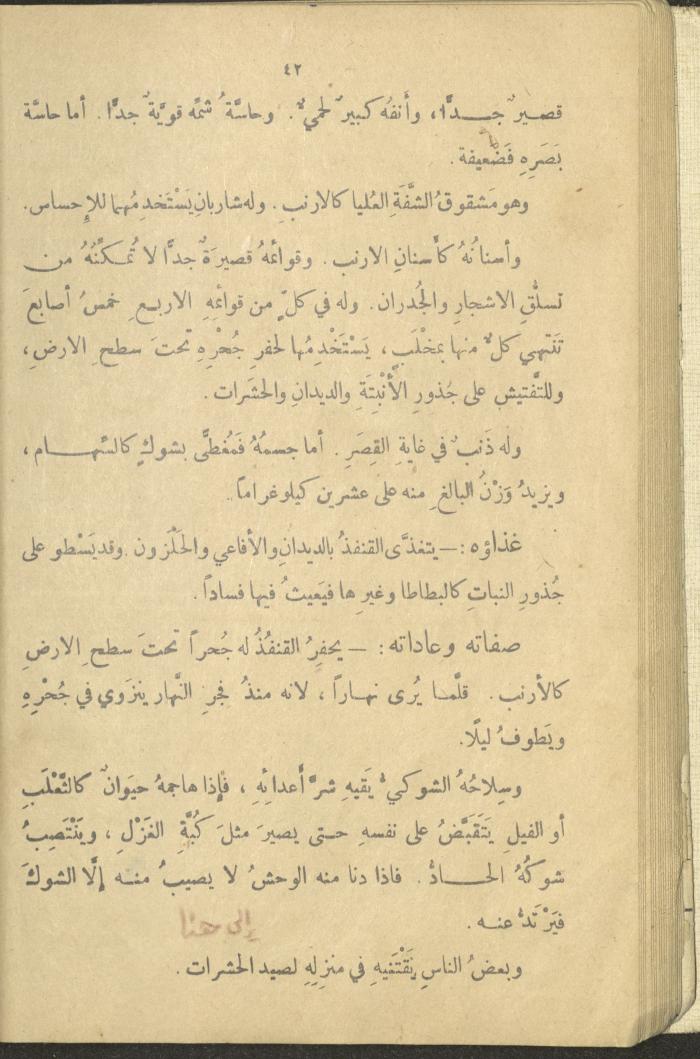 ٤٢
قصيرٌ جــدًّا، وأَنفهُ كبيرٌ لحميٌّ. وحاسَّةُ شمِّه قويَّةٌ جدًّا. أما حاسَّة
بَصَرِهِ فَضَعيفة.
وهو مَشقوقُ الشَّفَةِ العُليا كالارنبِ. وله شاربانِ يَسْتَخدِمُهما للإحساس.
وأسنانُهُ كأَسنانِ الارنب. وقوائمُهُ قصيرَةٌ جدًّا لا تُمكِّنُهُ من
تسلُّقِ الاشجارِ والجُدران. وله في كلٍّ من قوائمِهِ الاربعِ خمسُ أصابعَ
تَنتهي كلٌّ منها بمخْلَبٍ، يَسْتَخْدِمُها لحفرِ جُحْرِهِ تحتَ سطحِ الارضِ،
وللتَّفتيش على جُذورِ الأَنْبِتَةِ والديدانِ والحشَرات.
وله ذَنبٌ في غايةِ القِصَرِ. أما جسمُهُ فَمُغطًّى بشوكٍ كالسِّهـام،
ويزيدُ وَزْنُ البالغِ منه على عشرين كيلوغراماً.
غذاؤه :– يتغذَّى القنفذُ بالديدانِ والأفاعي والحَلَزون. وقد يَسْطو على
جُذورِ النباتِ كالبطاطا وغيرِها فيَعيثُ فيها فساداً.
صفاته وعاداته: – يحفِرُ القنفُذُ له جُحراً تحتَ سطحِ الارضِ
كالأرنب. قلَّمـا يُرى نهـاراً، لانه منذُ فجرِ النَّهار ينزَوي في جُحْرِهِ
ويَطوفُ ليلًا.
وسِلاحُهُ الشوكيُّ يَقيهِ شرَّ أَعدائِهِ، فإِذا هاجمهُ حيَوانٌ كالثَّعْلَبِ
أو الفيلِ يَتَقَبَّضُ على نفسهِ حتى يصيرَ مثلَ كُبَّةِ الغَزْلِ، ويَنْتَصِبُ
شوكُهُ الحـادُّ. فاذا دنا منه الوحشُ لا يصيبُ منـه إلَّا الشوكَ
فيَرْتَدُّ عنـه.
إلى هنا
وبعضُ الناسِ يَقْتَنيهِ في منزِلِهِ لصيد الحشرات.